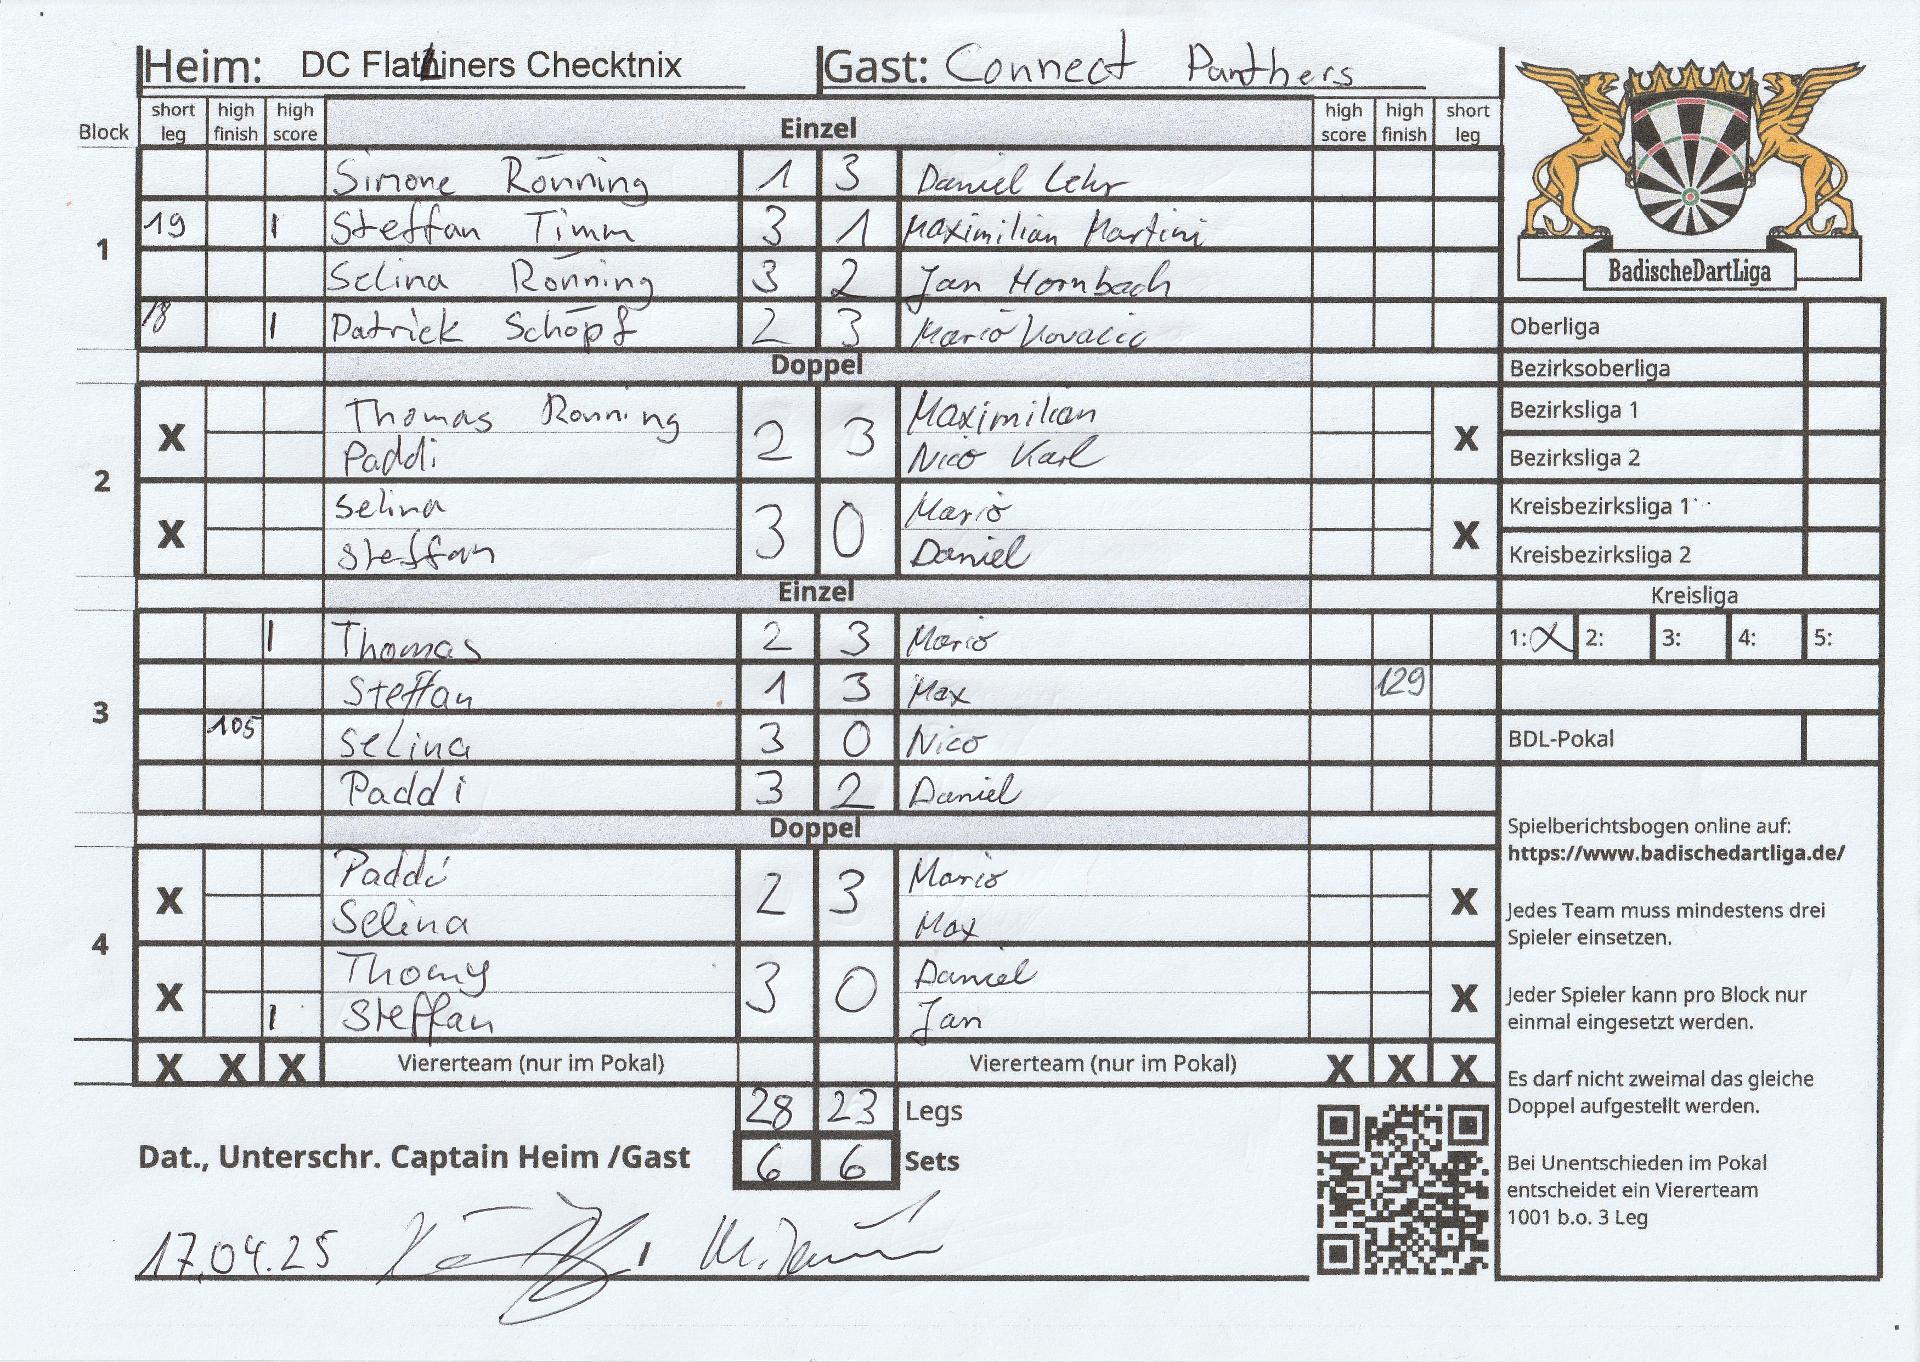 Heim: DC FlatLiners Checktnix Gast: Connect Panthers
Block short leg high finish high score Einzel high score high finish short leg
1
Simone Rönning 1 3 Daniel Lehr
19 I Steffan Timm 3 1 Maximilian Martini
Selina Rönning 3 2 Jan Hornbach
18 I Patrick Schöpf 2 3 Mario Kovacic
Doppel
2
X Thomas Rönning 2 3 Maximilian X
Paddi Nico Karl
X Selina 3 0 Mario X
Steffan Daniel
Einzel
3
I Thomas 2 3 Mario
Steffan 1 3 Max 129
105 Selina 3 0 Nico
Paddi 3 2 Daniel
Doppel
4
X Paddi 2 3 Mario X
Selina Max
X Thomy 3 0 Daniel X
I Steffan Jan
X X X Viererteam (nur im Pokal) Viererteam (nur im Pokal) X X X
28 23 Legs
Dat., Unterschr. Captain Heim /Gast 6 6 Sets
17.04.25
BadischeDartLiga
Oberliga
Bezirksoberliga
Bezirksliga 1
Bezirksliga 2
Kreisbezirksliga 1
Kreisbezirksliga 2
Kreisliga
1: X 2: 3: 4: 5:
BDL-Pokal
Spielberichtsbogen online auf:
https://www.badischedartliga.de/
Jedes Team muss mindestens drei
Spieler einsetzen.
Jeder Spieler kann pro Block nur
einmal eingesetzt werden.
Es darf nicht zweimal das gleiche
Doppel aufgestellt werden.
Bei Unentschieden im Pokal
entscheidet ein Viererteam
1001 b.o. 3 Leg